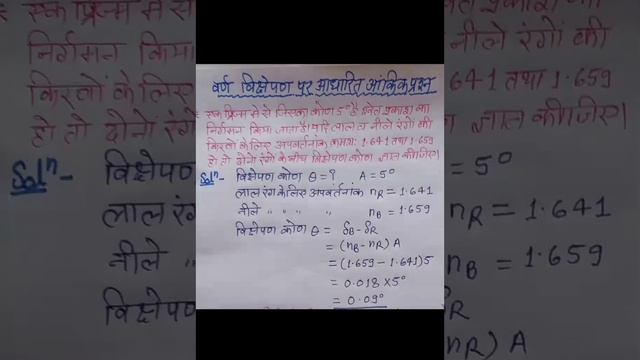 वर्ण विक्षेपण पर आधारित आंकिक प्रश्न
एक प्रिज्म में से जिसका कोण 5° है श्वेत प्रकाश का
निर्गमन किया जाता है। यदि लाल व नीले रंगों की
किरणों के लिए अपवर्तनांक क्रमशः 1.641 तथा 1.659
हो तो दोनों रंगों के बीच विक्षेपण कोण ज्ञात कीजिए।
Solⁿ- विक्षेपण कोण θ = ? A = 5°
लाल रंग के लिए अपवर्तनांक nR = 1.641
नीले " " " " nB = 1.659
विक्षेपण कोण θ = δB - δR
= (nB - nR) A
= (1.659 - 1.641) 5
= 0.018 × 5°
= 0.09°